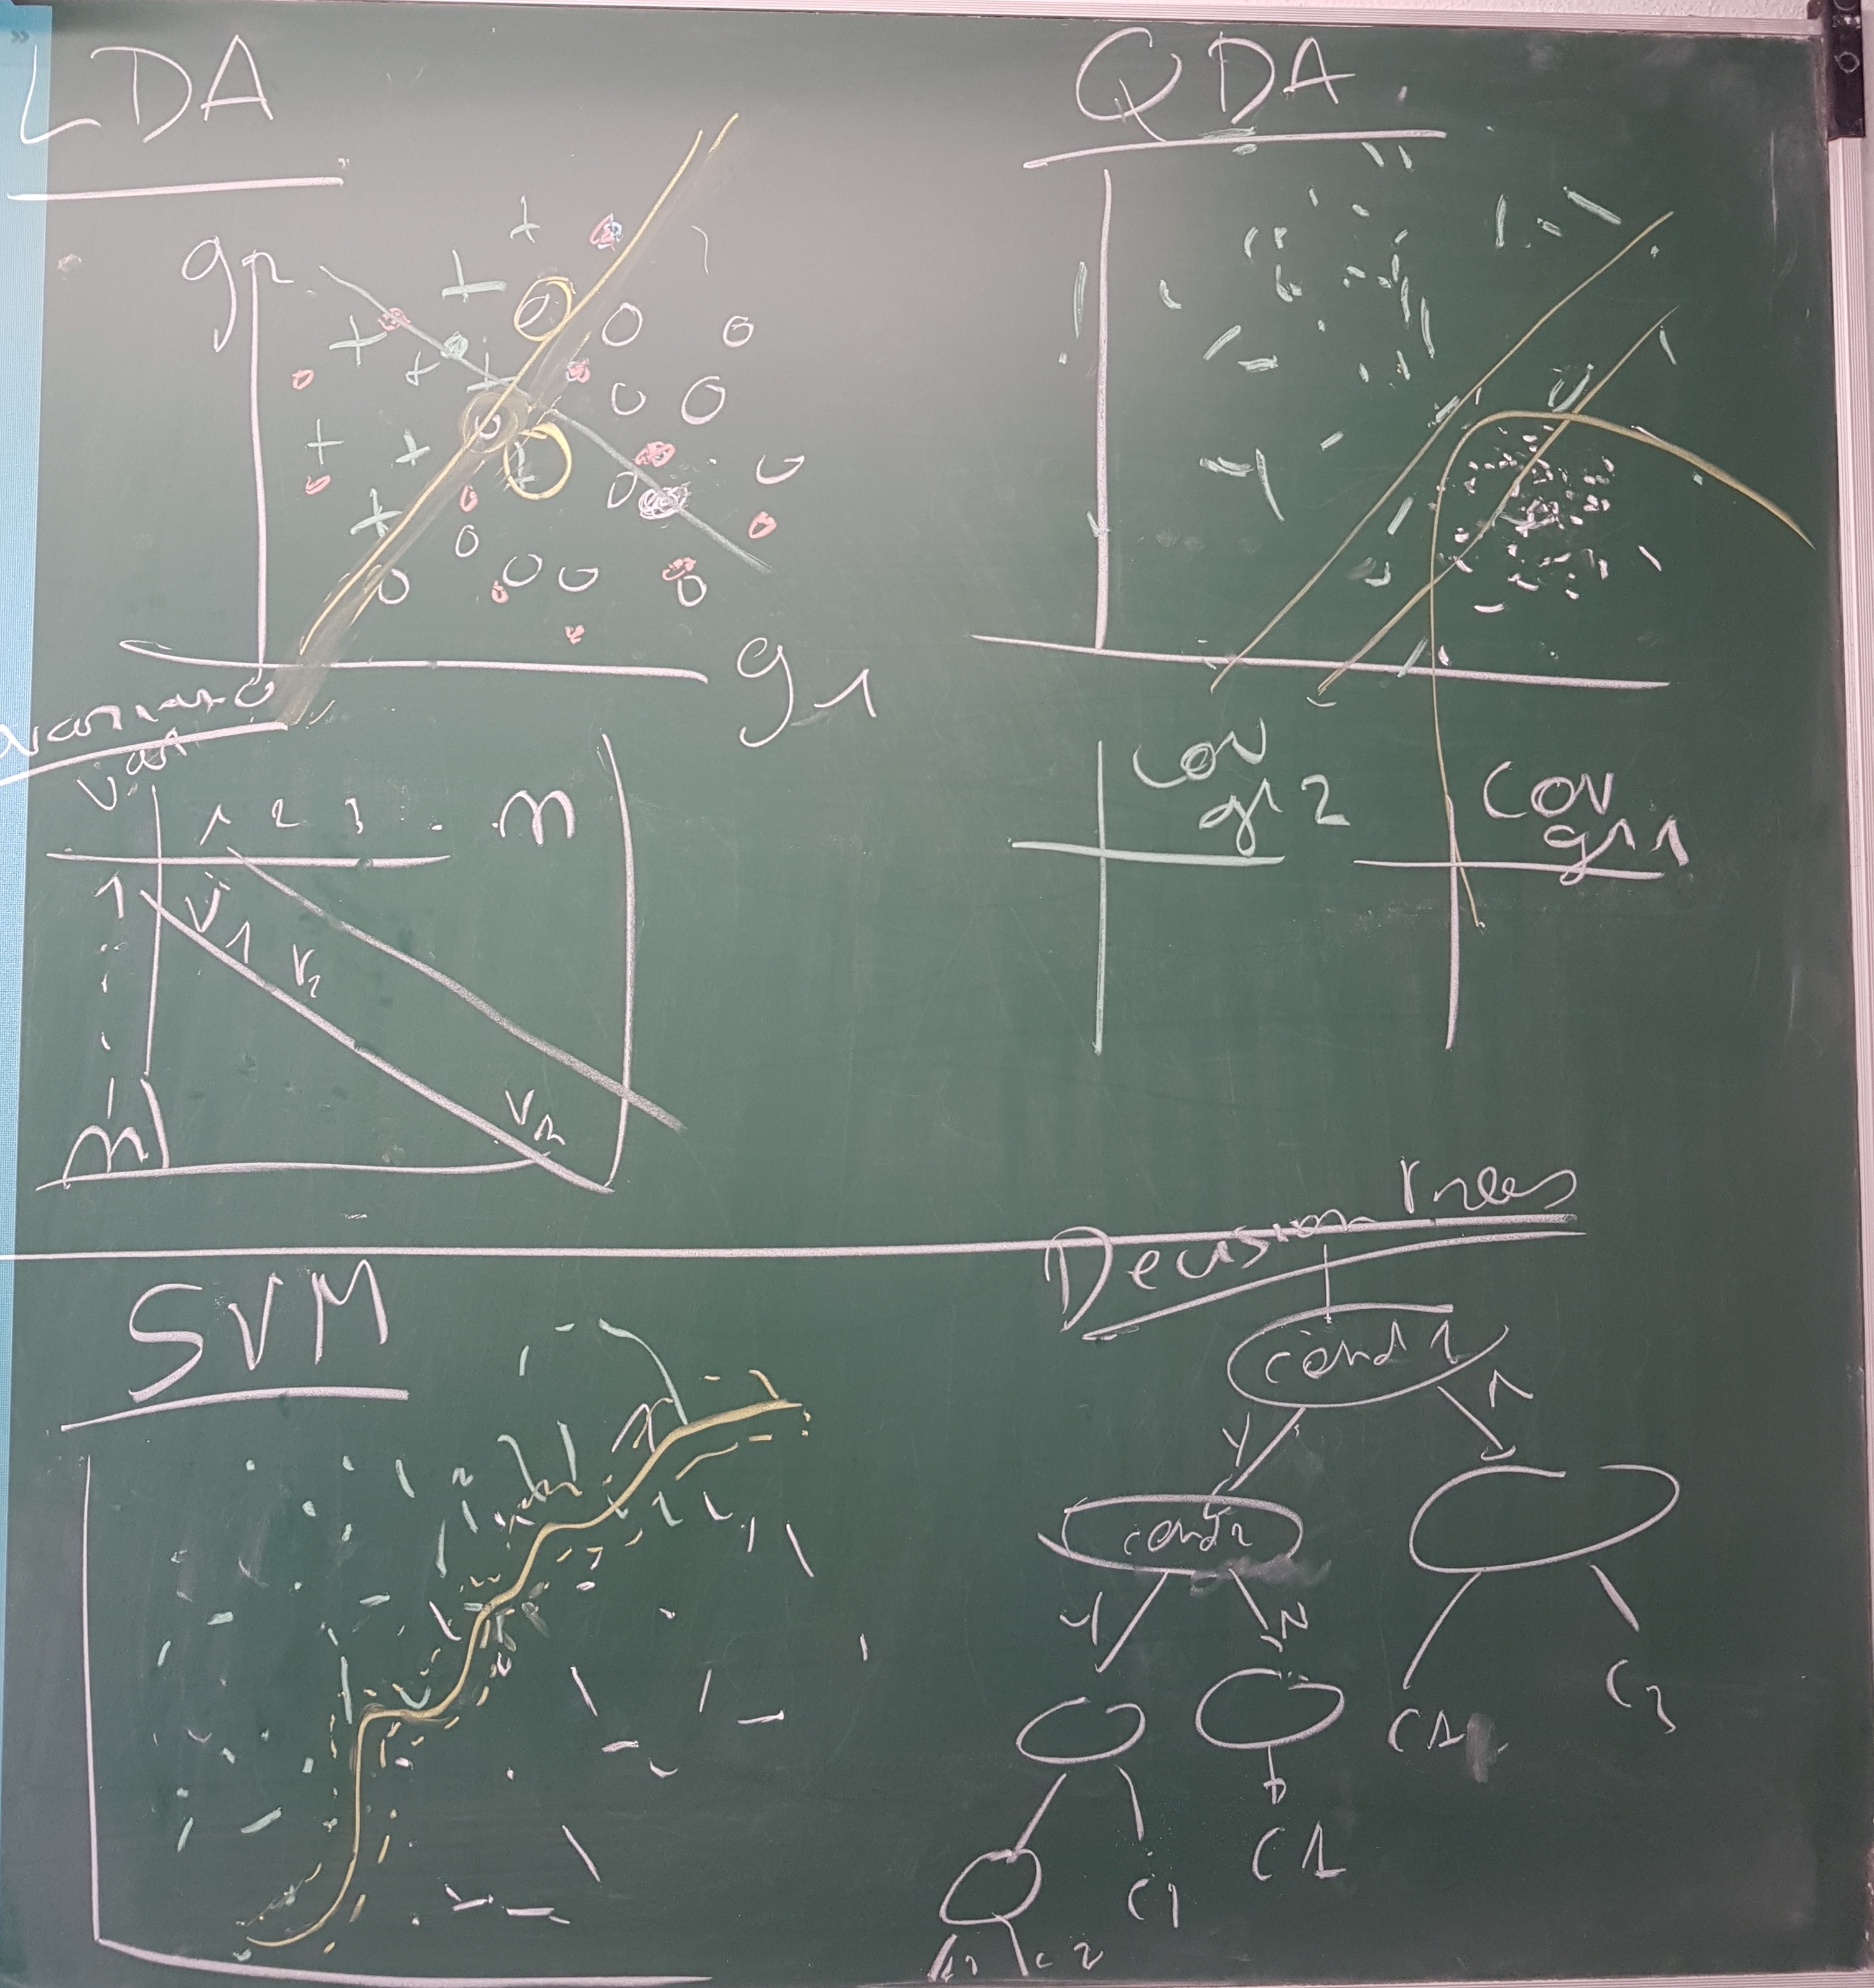 LDA
g2
g1
var
1 2 3 . m
1
V1
V2
m
Vm
QDA
cov
gr 2
cov
gr 1
SVM
Decision Trees
cond 1
Y
N
cond 2
Y
N
C1
C2
C1
C1
C2